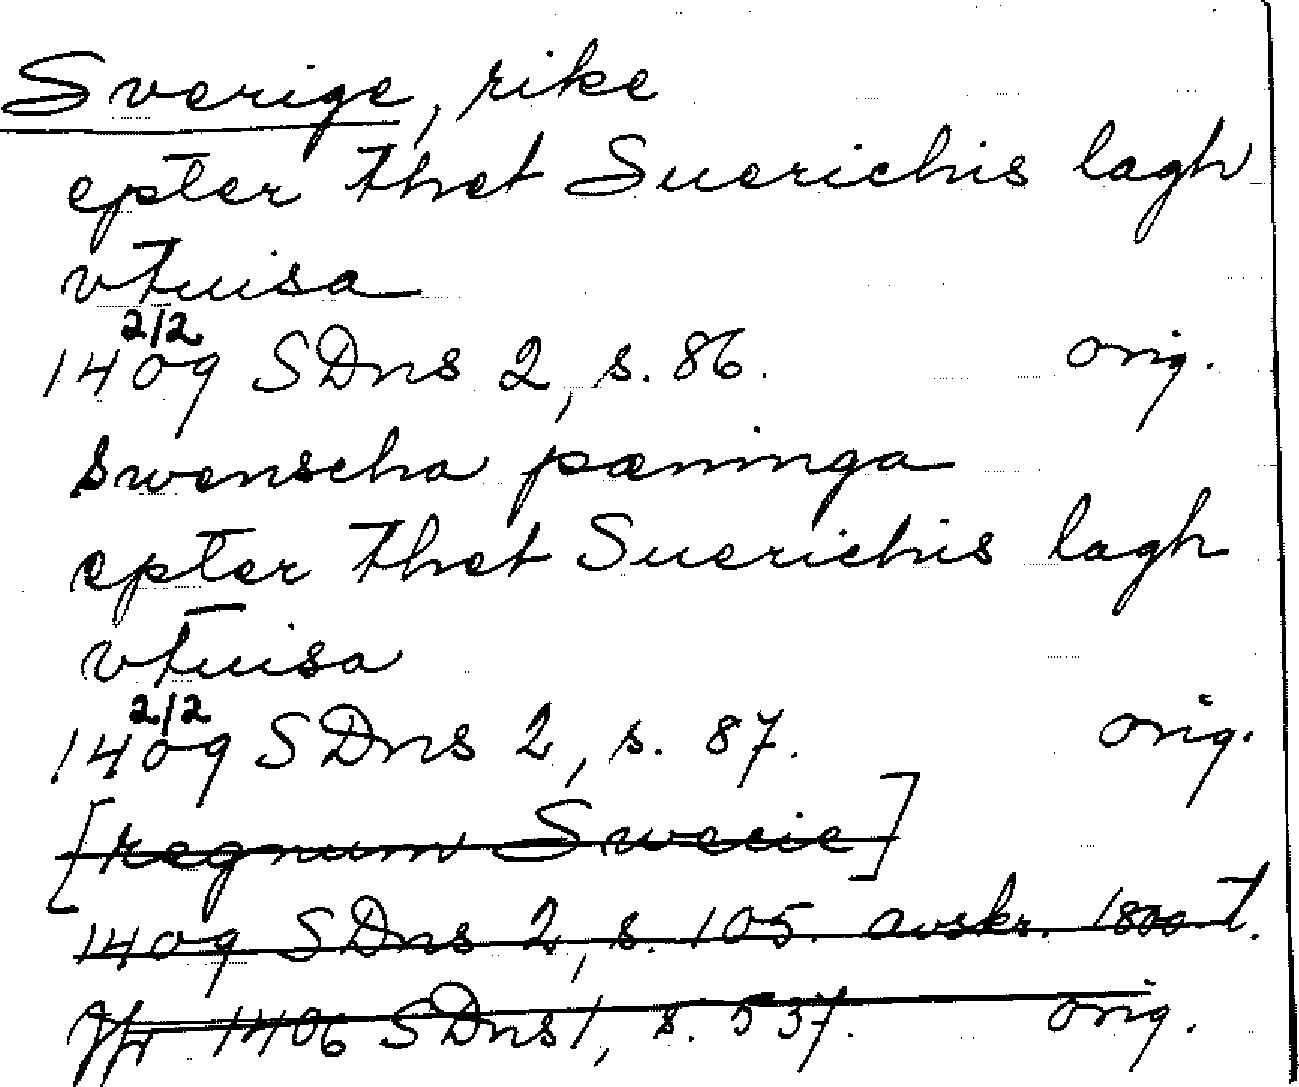 Sverige, rike
epter thet Suerichis lagh
vtuisa
2/2
1409 SDns 2, s. 86. orig.
Swenscha pæninga
epter thet Suerichis lagh
vtuisa
2/2
1409 SDns 2, s. 87. orig.
[regnum Swecie]
1409 SDns 2, s. 105. avskr. 1800-t.
Jfr 1406 SDns 1, s. 537. orig.